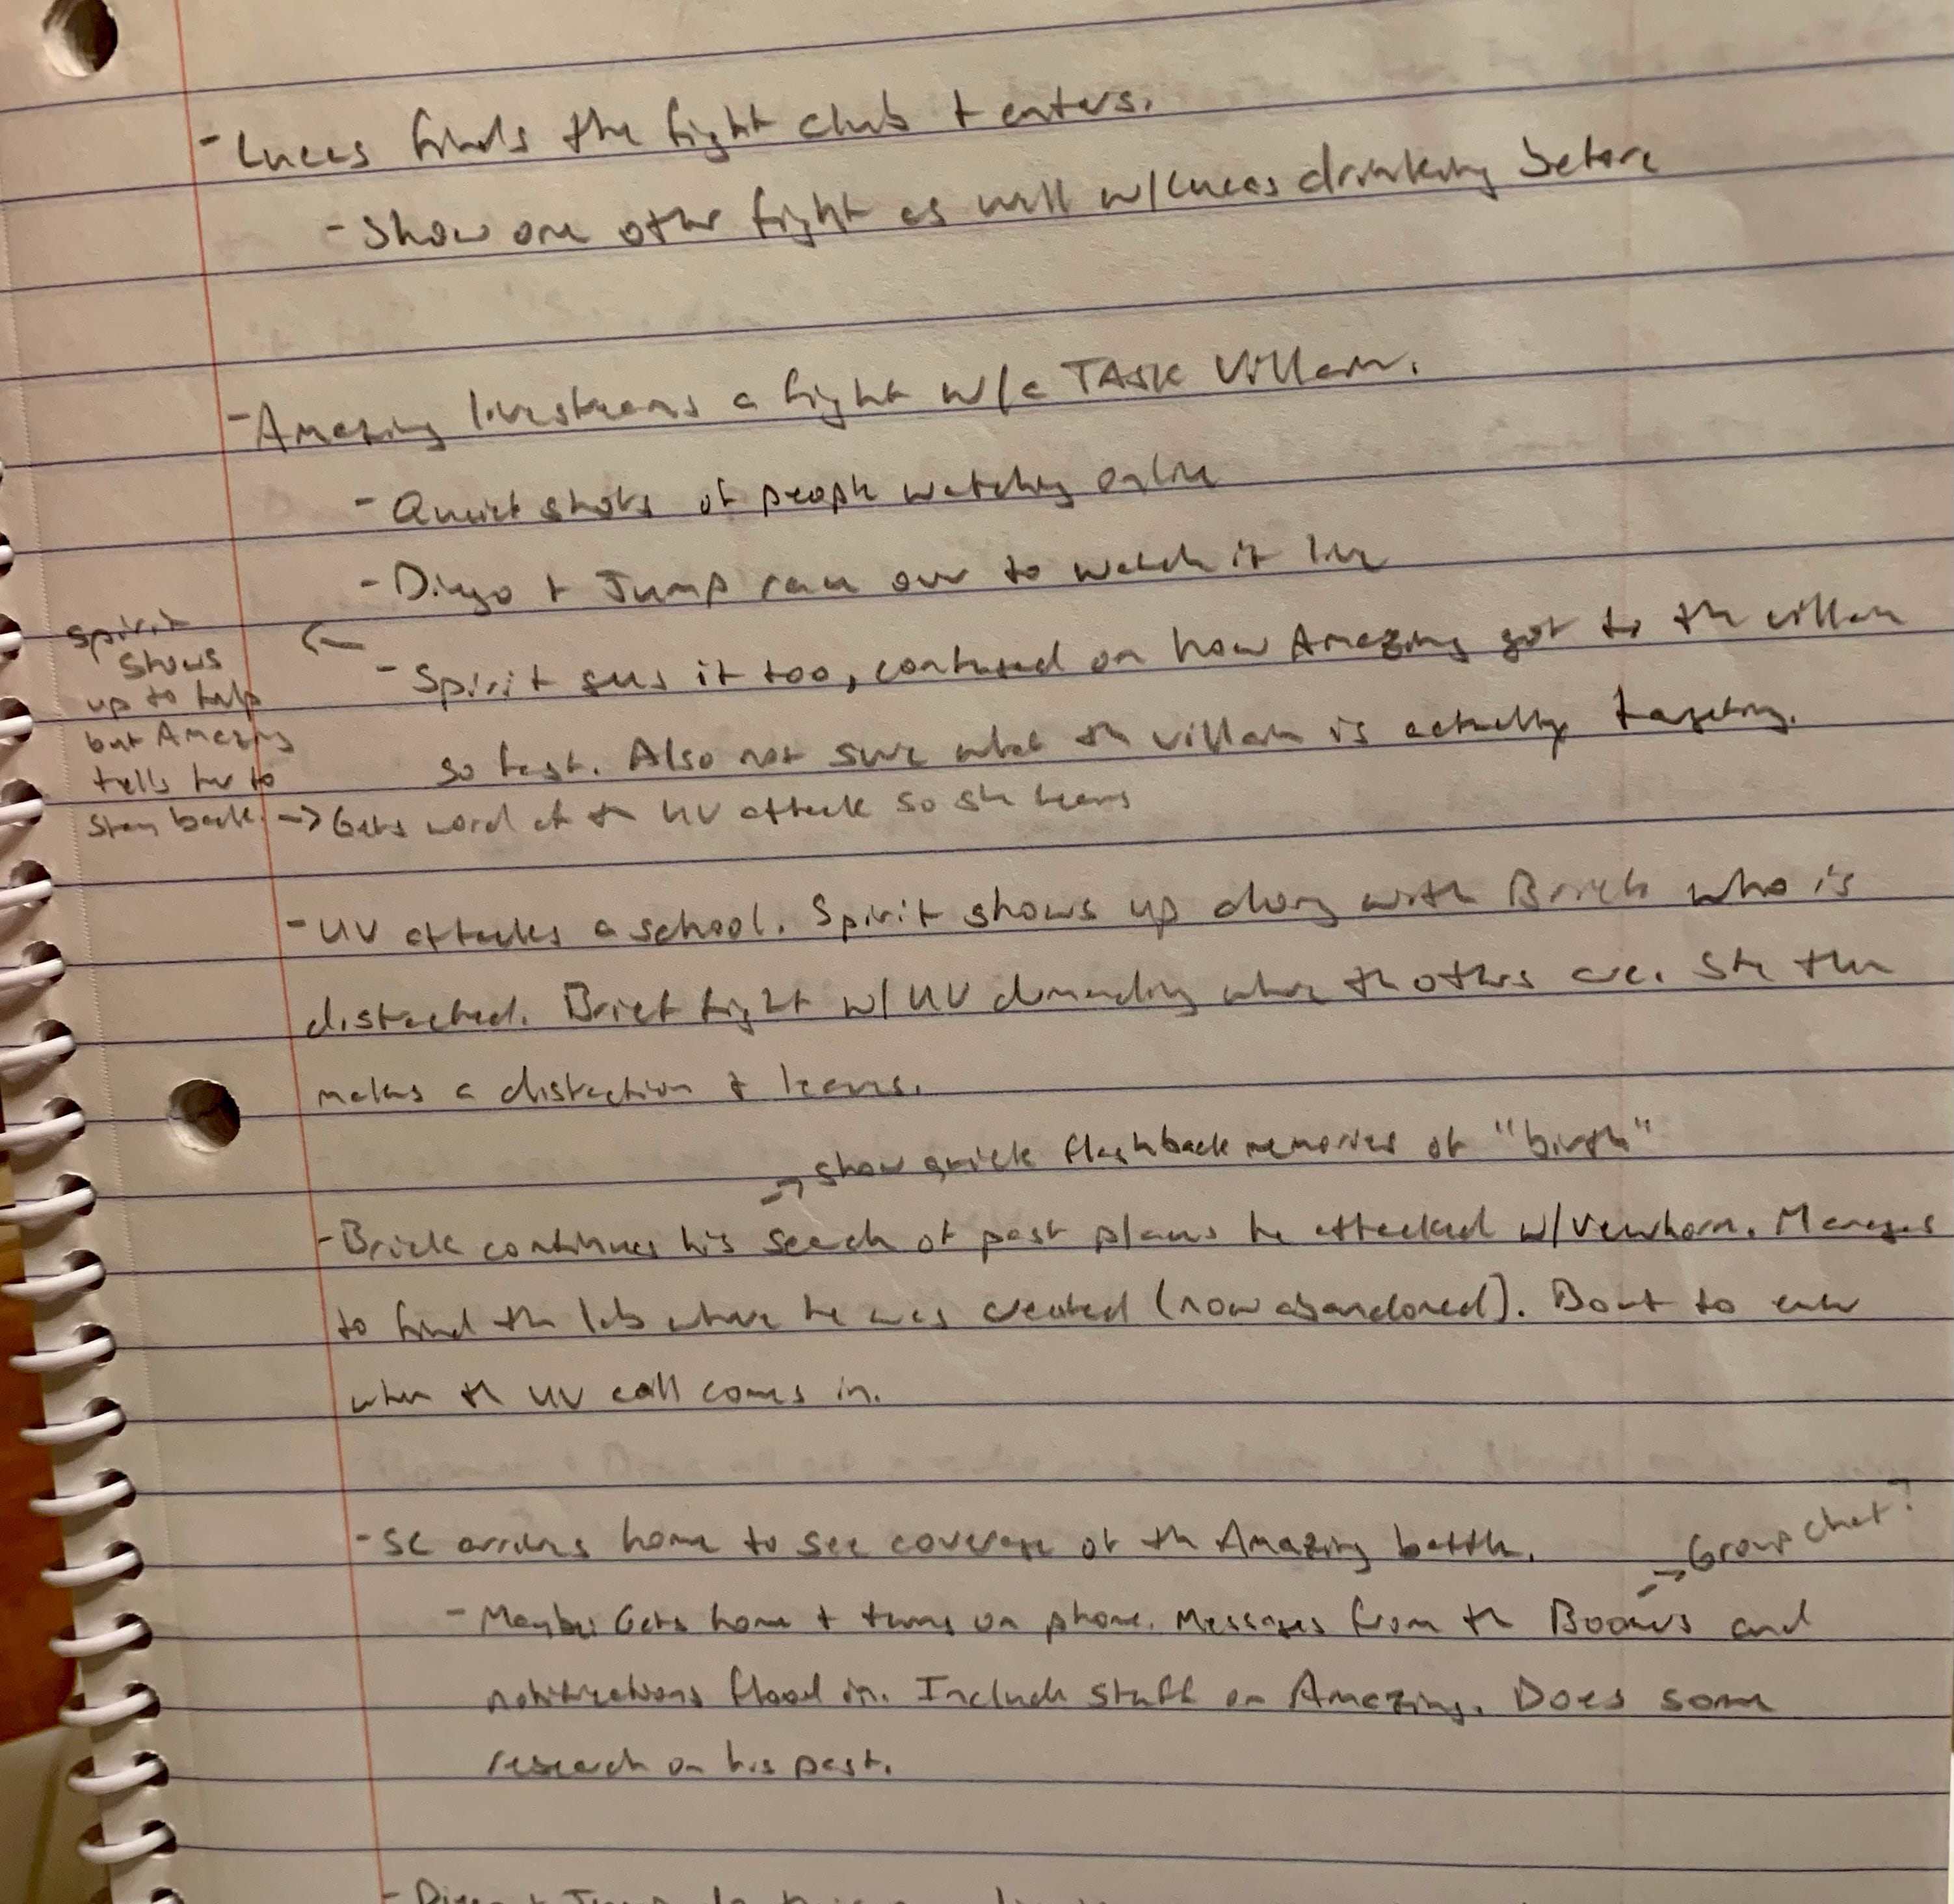 - Lucas finds the fight club + enters.
- Show one other fight as well w/Lucas drinking before
- Amazing livestreams a fight w/a TASK Villain.
- Quick shots of people watching online
- Diego + Jump race over to watch it live
- Spirit sees it too, confused on how Amazing got to the villain
so fast. Also not sure what the villain is actually targeting.
<- Spirit
shows
up to help
but Amazing
tells her to
stay back. -> Gets word of the UV attack so she leaves
- UV attacks a school. Spirit shows up along with Brick who is
distracted. Brief fight w/ UV demanding where the others are. She then
makes a distraction + leaves.
-> show quick flashback memories of "birth"
- Brick continues his search of past places he attacked w/ . Manages
to find the lab where he was created (now abandoned). Bout to enter
when the UV call comes in.
- SC arrives home to see coverage of the Amazing battle.
-> Group chat?
- Maybe: Gets home + turns on phone. Messages from the and
notifications flood in. Include stuff on Amazing. Does some
research on his past.
- Diego + Jump